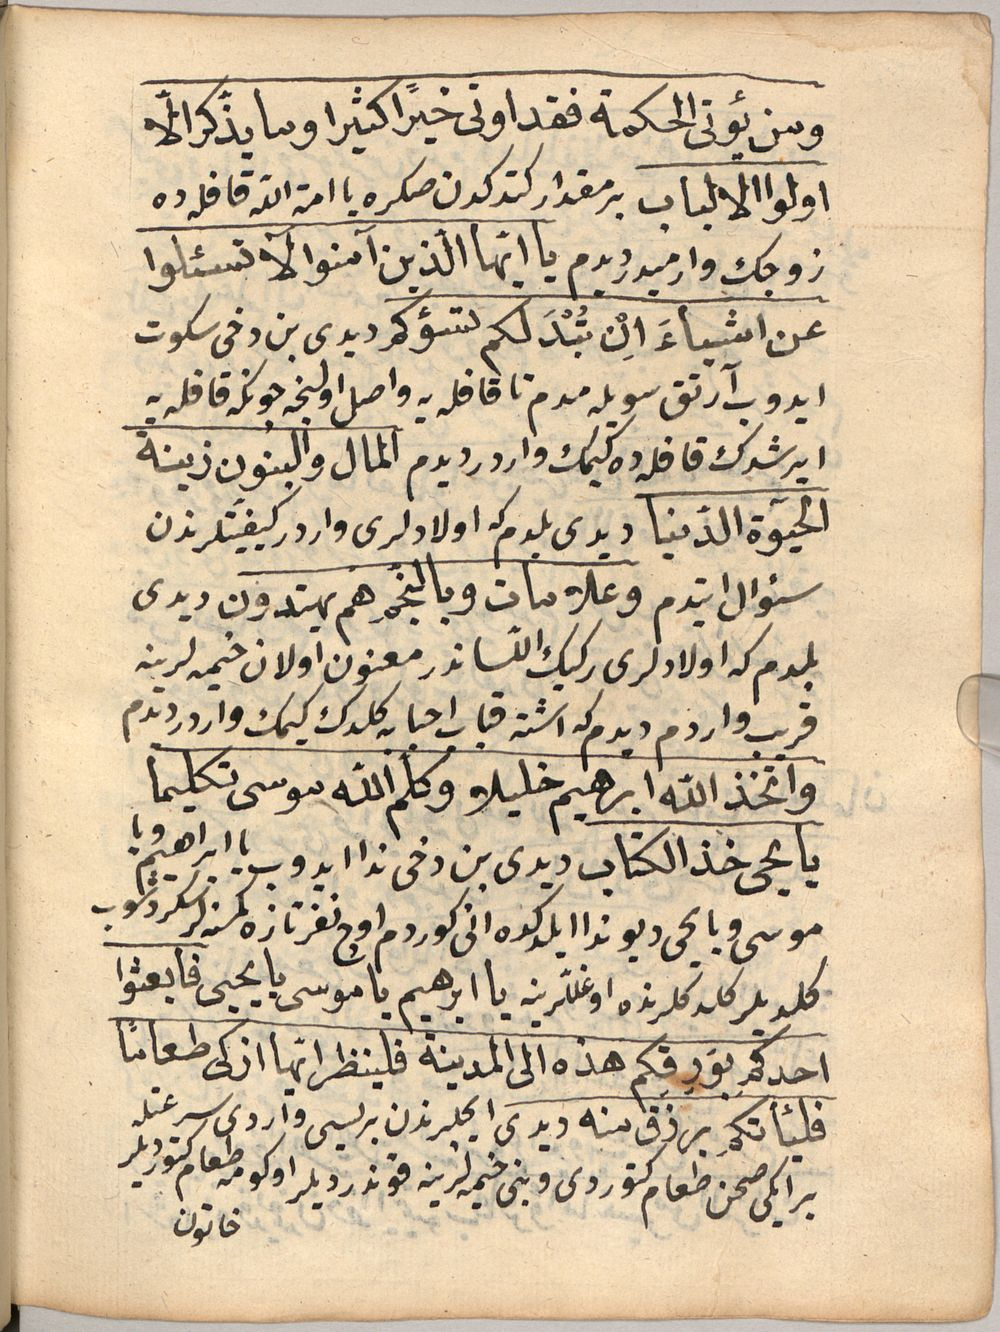 ومن يؤتى الحكمة فقد اوتى خيرًا كثيرا وما يذّكر الّا
اولوا الالباب بر مقدار كتدكدن صكره يا امة الله قافله ده
زوجك وارميدر ديدم يا ايّها الّذين آمنوا لآ تسئلوا
عن اشياءَ اِنْ تُبْدَ لكم تسؤكم ديدى بن دخى سكوت
ايدوب آرتق سويله مدم تا قافله يه واصل اولنجه چونكه قافله يه
ايرشدك قافله ده كيمك واردر ديدم المال والبنُون زينة
الحيٰوة الدّنيا ديدى بلدم كه اولادلرى واردر كيفيّتلرندن
سئوال ايتدم وعلامات وبالنّجمِ هم يهتدون ديدى
بلدم كه اولادلرى ركيك اللّساندر معنون اولان خيمه لرينه
قريب واردم ديدم كه اشته قباب احبابه كلدك كيمك واردر ديدم
واتّخذ الله ابرهيم خليلا وكلّم الله موسى تكليما
يا يحيى خذ الكتاب ديدى بن دخى ندا ايدوب يا ابراهيم ويا
موسى ويا يحيى ديو ندا ايلدكده انى كوردم اوچ نفر تازه كمسنه لر سكردشوب
كلديلر كلدكلرنده اوغللرينه يا ابرهيم يا موسى يا يحيى فابعثوا
احدكم بوَرِقِكم هذه الى المدينة فلينظر ايّها ازكى طعامًا
فليأتكم برزق منه ديدى ايچلرندن بريسى واردى سرعتله
بر ايكى صحن طعام كتوردى وبنى خيمه لرينه قوندرديلر اوكومه طعام كتورديلر
خاتون